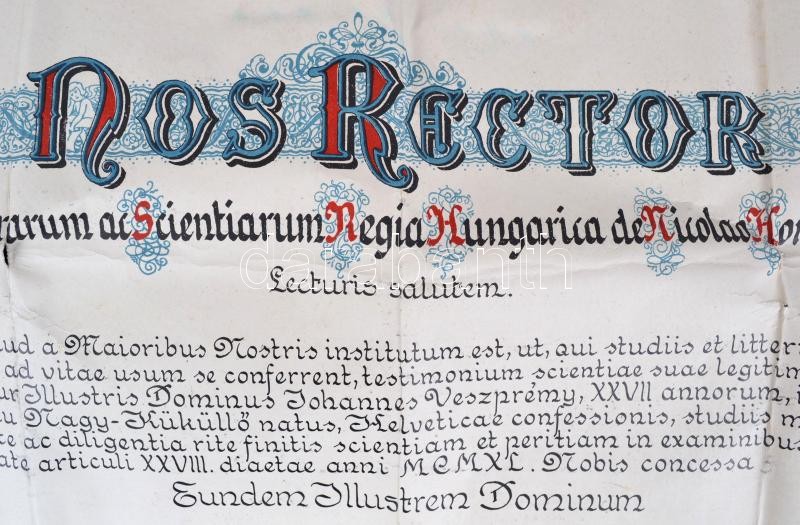 NOS RECTOR
rarum ac Scientiarum Regia Hungarica de Nicolao Hor
Lecturis salutem.
ud a Maioribus Nostris institutum est, ut, qui studiis et litter
ad vitae usum se conferrent, testimonium scientiae suae legitim
ur Illustris Dominus Johannes Veszprémy, XXVII annorum,
u Nagy-Küküllő natus, Helveticae confessionis, studiis m
ce ac diligentia rite finitis scientiam et peritiam in examinibus
ate articuli XXVIII. diaetae anni MCMXL. Nobis concessa
Eundem Illustrem Dominum